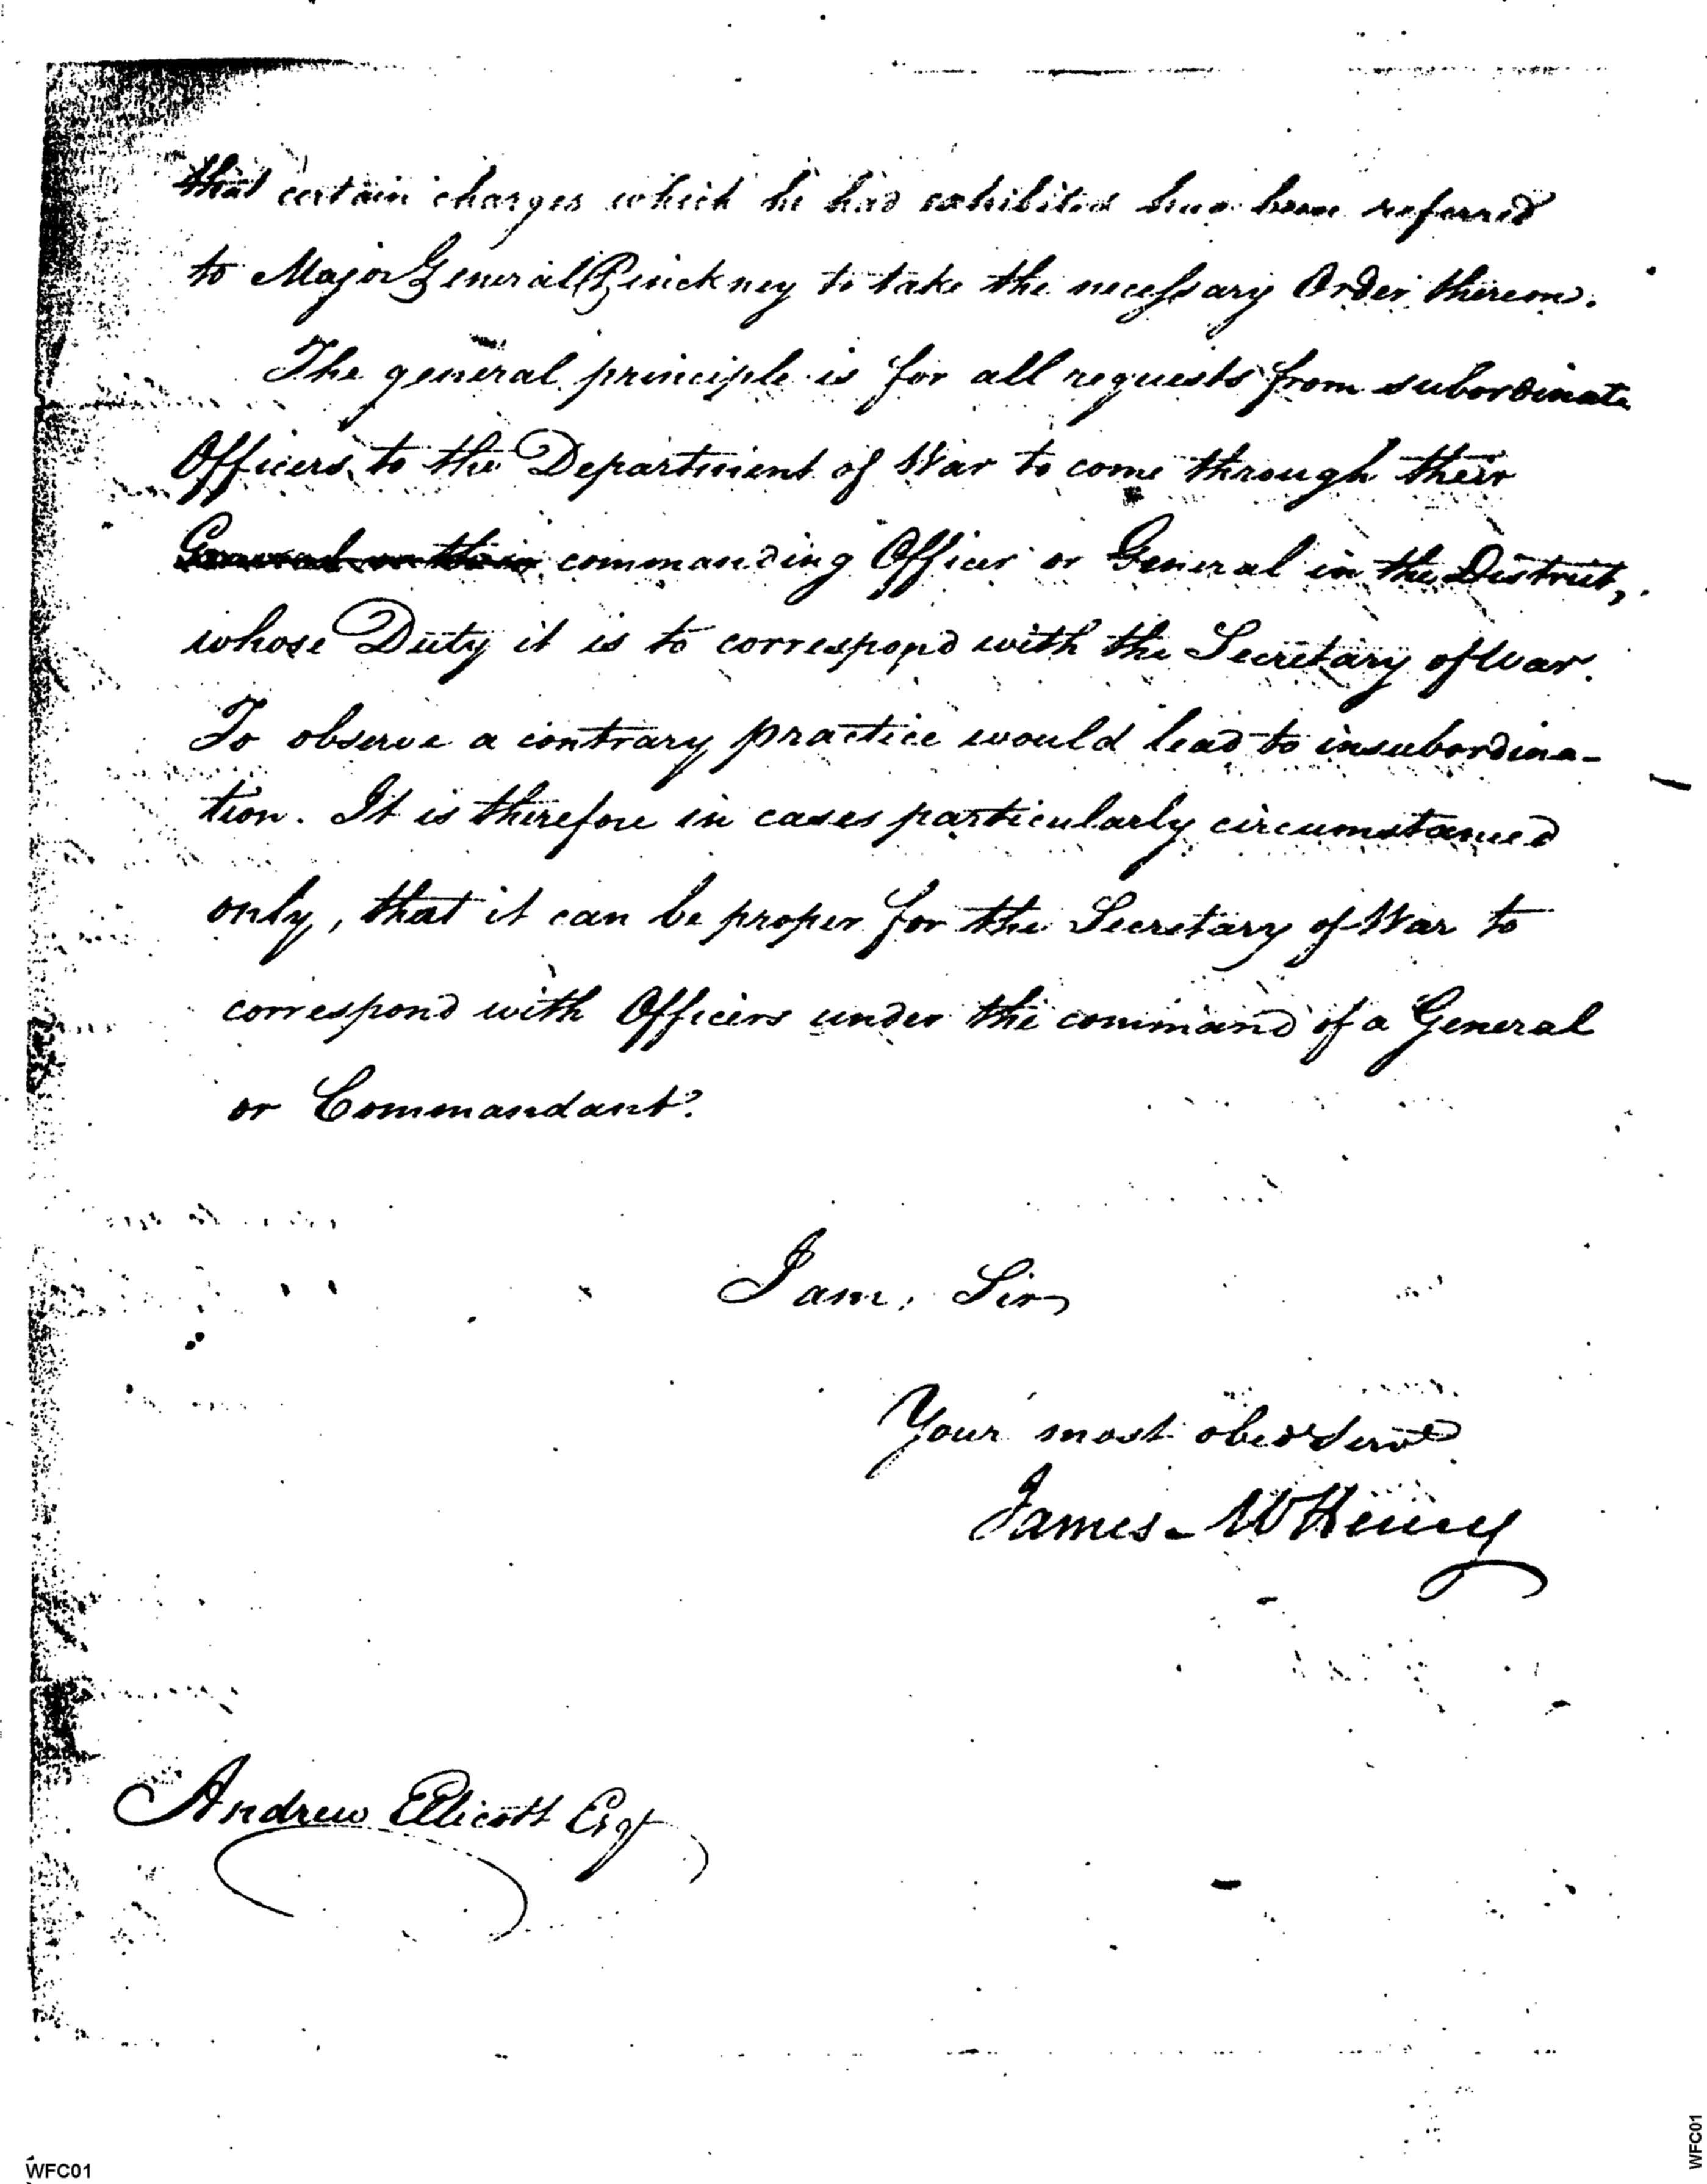 that certain charges which he had exhibited have been referred
to Major General Pinckney to take the necessary Order thereon.
The general principle is for all requests from subordinate
Officers to the Department of War to come through their
General or their commanding Officer or General in the District,
whose Duty it is to correspond with the Secretary of War.
To observe a contrary practice would lead to insubordina-
tion. It is therefore in cases particularly circumstanced
only, that it can be proper for the Secretary of War to
correspond with Officers under the command of a General
or Commandant.
I am, Sir,
Your most obed Servt
James McHenry
Andrew Ellicott Esqr
WFC01
WFC01